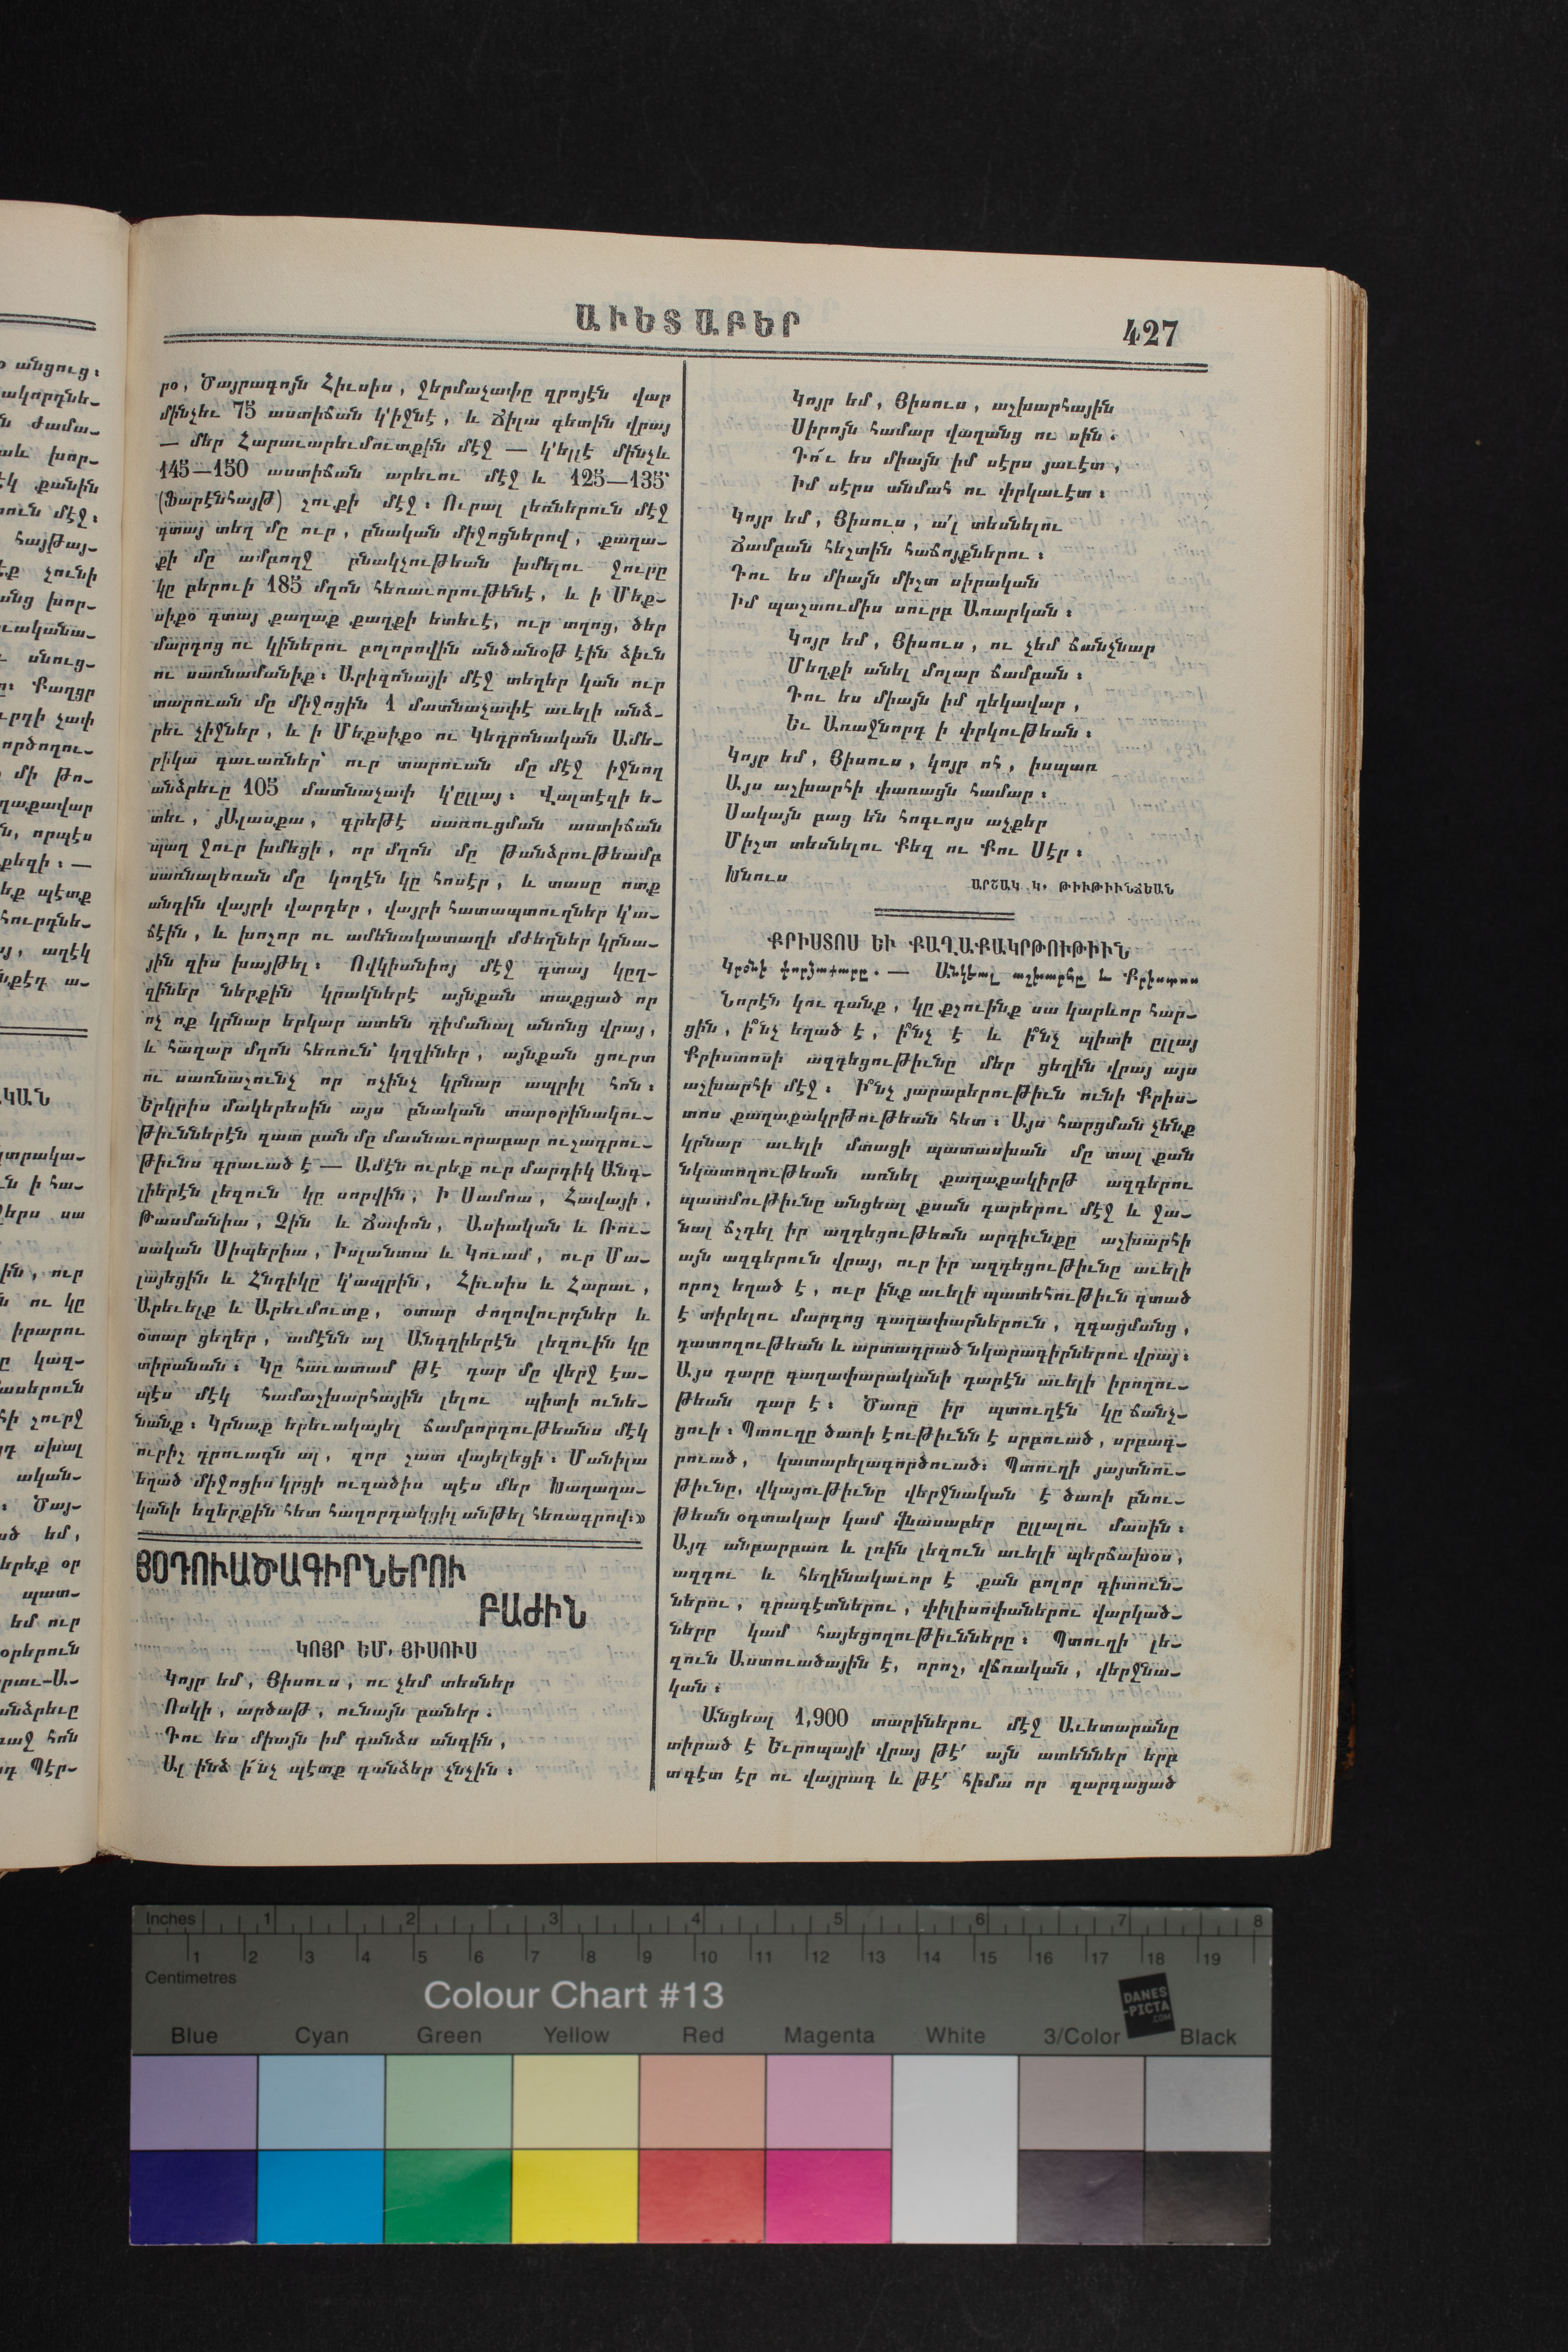 ԱՒԵՏԱԲԵՐ
427
րօ, Ծայրագոյն Հիւսիս, ջերմաչափը զրոյէն վար
մինչեւ 75 աստիճան կ'իջնէ, և Ճիլա գետին վրայ
— մեր Հարաւարեւմուտքին մէջ — կ'ելլէ մինչև
145—150 աստիճան արեւու մէջ և 125—135՝
(Ֆարէնհայթ) շուքի մէջ։ Ուրալ լեռներուն մէջ
գտայ տեղ մը ուր, բնական միջոցներով, քաղա-
քի մը ամբողջ բնակչութեան խմելու ջուրը
կը բերուի 185 մղոն հեռաւորութենէ, և ի Մեք-
սիքօ գտայ քաղաք քաղքի ետեւէ, ուր տղոց, ծեր
մարդոց ու կիներու բոլորովին անծանօթ էին ձիւն
ու սառնամանիք։ Արիզոնայի մէջ տեղեր կան ուր
տարուան մը միջոցին 1 մատնաչափէ աւելի անձ-
րեւ չիջներ, և ի Մեքսիքօ ու Կեդրոնական Ամե-
րիկա գաւառներ՝ ուր տարուան մը մէջ իջնող
անձրեւը 105 մատնաչափ կ'ըլլայ։ Վալտէզի ե-
տեւ, յԱլասքա, գրեթէ սառուցման աստիճան
պաղ ջուր խմեցի, որ մղոն մը թանձրութեամբ
սառնալեռան մը կողէն կը հոսէր, և տասը ոտք
անդին վայրի վարդեր, վայրի հատապտուղներ կ'ա-
ճէին, և խոշոր ու ամենակատաղի մժեղներ կրնա-
յին զիս խայթել։ Ովկիանիոյ մէջ գտայ կըղ-
զիներ ներքին կրակներէ այնքան տաքցած որ
ոչ ոք կրնար երկար ատեն դիմանալ անոնց վրայ,
և հազար մղոն հեռուն՝ կղզիներ, այնքան ցուրտ
ու սառնաշունչ որ ոչինչ կրնար ապրիլ հոն։
Երկրիս մակերեսին այս բնական տարօրինակու-
թիւններէն զատ բան մը մասնաւորաբար ուշադրու-
թիւնս գրաւած է — Ամէն ուրեք ուր մարդիկ Անգ-
լիերէն լեզուն կը սորվին, Ի Սամոա, Հավայի,
Թասմանիա, Չին և Ճափոն, Ասիական և Ռու-
սական Սիպերիա, Իսլանտա և Կուամ, ուր Մա-
լայեցին և Հնդիկը կ'ապրին, Հիւսիս և Հարաւ,
Արեւելք և Արեւմուտք, օտար ժողովուրդներ և
օտար ցեղեր, ամէնն ալ Անգղիերէն լեզուին կը
տիրանան։ Կը հաւատամ թէ դար մը վերջ էա-
պէս մէկ համաշխարհային լելու պիտի ունե-
նանք։ Կրնաք երեւակայել ճամբորդութեանս մէկ
ուրիշ դրուագն ալ, զոր շատ վայելեցի։ Մանիլա
եղած միջոցիս կրցի ուղածիս պէս մեր Խաղաղա-
կանի եզերքին հետ հաղորդակցիլ անթել հեռագրով։»
ՅՕԴՈՒԱԾԱԳԻՐՆԵՐՈՒ
ԲԱԺԻՆ
ԿՈՅՐ ԵՄ, ՅԻՍՈՒՍ
Կոյր եմ, Յիսուս, ու չեմ տեսներ
Ոսկի, արծաթ, ունայն բաներ.
Դու ես միայն իմ գանձս անգին,
Ալ ինձ ի՛նչ պէտք գանձեր չնչին։
Կոյր եմ, Յիսուս, աշխարհային
Սիրոյն համար վաղանց ու սին.
Դո՛ւ ես միայն իմ սէրս յաւէտ,
Իմ սէրս անմահ ու փրկաւէտ։
Կոյր եմ, Յիսուս, ա՛լ տեսնելու
Ճամբան հեշտին հաճոյքներու։
Դու ես միայն միշտ սիրական
Իմ պաշտումիս սուրբ Առարկան։
Կոյր եմ, Յիսուս, ու չեմ ճանչնար
Մեղքի անել մոլար ճամբան։
Դու ես միայն իմ ղեկավար,
Եւ Առաջնորդ ի փրկութեան։
Կոյր եմ, Յիսուս, կոյր ոհ, իսպառ
Այս աշխարհի փառացն համար։
Սակայն բաց են հոգւոյս աչքեր
Միշտ տեսնելու Քեզ ու Քու Սէր։
Խնուս
ԱՐՇԱԿ Կ. ԹԻՒԹԻՒՆՃԵԱՆ
ՔՐԻՍՏՈՍ ԵՒ ՔԱՂԱՔԱԿՐԹՈՒԹԻՒՆ
Կրօնի փորձաքարը. — Անկեալ աշխարհը և Քրիստոս
Նորէն կու գանք, կը քշուինք սա կարևոր հար-
ցին, ի՞նչ եղած է, ի՞նչ է և ի՞նչ պիտի ըլլայ
Քրիստոսի ազդեցութիւնը մեր ցեղին վրայ այս
աշխարհի մէջ։ Ի՞նչ յարաբերութիւն ունի Քրիս-
տոս քաղաքակրթութեան հետ։ Այս հարցման չենք
կրնար աւելի մտացի պատասխան մը տալ քան
նկատողութեան առնել քաղաքակիրթ ազգերու
պատմութիւնը անցեալ քսան դարերու մէջ և ջա-
նալ ճշդել իր ազդեցութեան արդիւնքը աշխարհի
այն ազգերուն վրայ, ուր իր ազդեցութիւնը աւելի
որոշ եղած է, ուր ինք աւելի պատեհութիւն գտած
է տիրելու մարդոց գաղափարներուն, զգացմանց,
դատողութեան և արտադրած նկարագիրներու վրայ։
Այս դարը գաղափարականի դարէն աւելի իրողու-
թեան դար է։ Ծառը իր պտուղէն կը ճանչ-
ցուի։ Պտուղը ծառի էութիւնն է սրբուած, սրբագ-
րուած, կատարելագործուած։ Պտուղի յայտնու-
թիւնը, վկայութիւնը վերջնական է ծառի բնու-
թեան օգտակար կամ վնասաբեր ըլլալու մասին։
Այդ անբարբառ և լռին լեզուն աւելի պերճախօս,
ազդու և հեղինակաւոր է քան բոլոր գիտուն-
ներու, գրագէտներու, փիլիսոփաներու վարկած-
ները կամ հայեցողութիւնները։ Պտուղի լե-
զուն Աստուածային է, որոշ, վճռական, վերջնա-
կան։
Անցեալ 1,900 տարիներու մէջ Աւետարանը
տիրած է Եւրոպայի վրայ թէ՛ այն ատեններ երբ
տգէտ էր ու վայրագ և թէ՛ հիմա որ զարգացած
Inches 1 2 3 4 5 6 7 8
1 2 3 4 5 6 7 8 9 10 11 12 13 14 15 16 17 18 19
Centimetres
Colour Chart #13
DANES
-PICTA
.COM
Blue Cyan Green Yellow Red Magenta White 3/Color Black